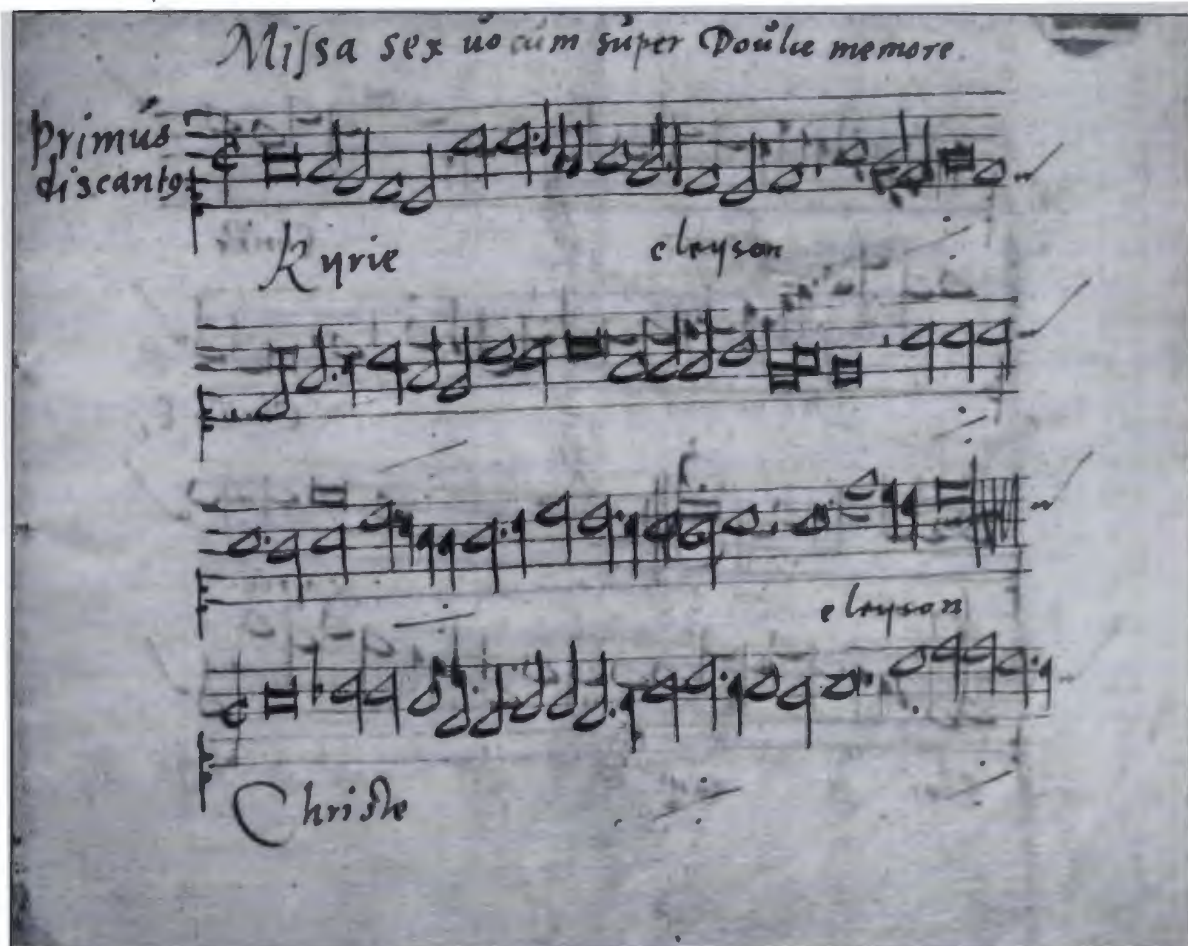 Missa sex uocum super Doulce memore.
Primus
discantus
Kyrie eleyson
eleyson
Christe